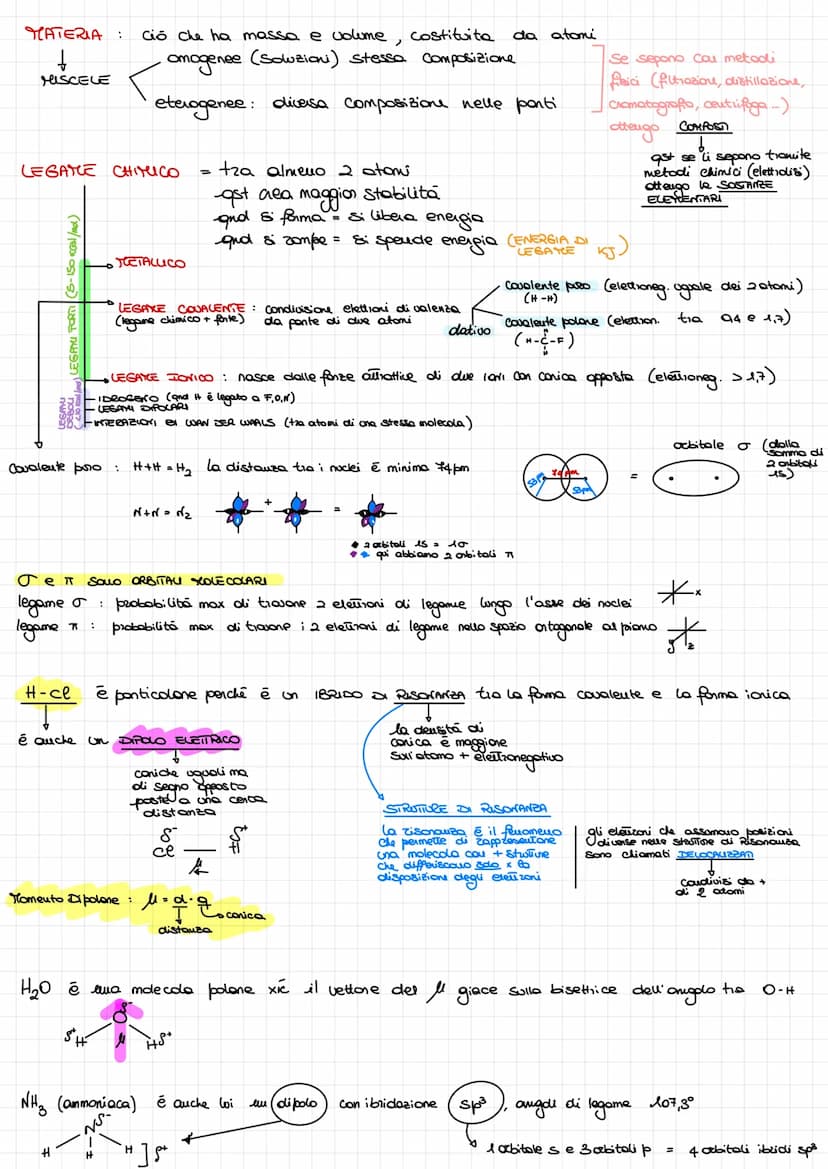 MATERIA : ciò che ha massa e volume, costituita da atomi
MISCELE
omogenee (Soluzioni) stessa composizione
eterogenee: diversa composizione nelle parti
Se separo con metodi
fisici (filtrazione, distillazione,
cromatografia, centrifuga...)
ottengo COMPOSTI
qst se li separo tramite
metodi chimici (elettrolisi)
ottengo le SOSTANZE
ELEMENTARI
LEGAME CHIMICO = tra almeno 2 atomi
-qst crea maggior stabilità
-qnd si forma = si libera energia
-qnd si rompe = si spende energia (ENERGIA DI
LEGAME KJ)
LEGAMI FORTI (5-150 kcal/mol)
METALLICO
LEGAME COVALENTE : condivisione elettroni di valenza
(legame chimico + forte) da parte di due atomi
dativo
covalente puro (elettroneg. uguale dei 2 atomi)
(H-H)
covalente polare (elettron. tra 0,4 e 1,7)
(H-C-F)
LEGAME IONICO : nasce dalle forze attrattive di due ioni con carica opposta (elettroneg. > 1,7)
LEGAMI
DEBOLI
IDROGENO (qnd H è legato a F,O,N)
LEGAMI DIPOLARI
INTERAZIONI DI WAN DER WAALS (tra atomi di una stessa molecola)
Covalente puro : H+H = H₂ la distanza tra i nuclei è minima 74pm
53pm 74pm 53pm
=
orbitale σ (dalla
somma di
2 orbitali
1s)
N+N = N₂ + =
2 orbitali 1S = 1σ
qui abbiamo 2 orbitali π
σ e π sono ORBITALI MOLECOLARI
legame σ : probabilità max di trovare 2 elettroni di legame lungo l'asse dei nuclei x
legame π : probabilità max di trovare i 2 elettroni di legame nello spazio ortogonale al piano y z
H-Cl è particolare perchè è un IBRIDO DI RISONANZA tra la forma covalente e la forma ionica
è anche un DIPOLO ELETTRICO
cariche uguali ma
di segno opposto
poste a una certa
distanza
δ⁻ δ⁺
Cl — H
μ
la densità di
carica è maggiore
sull'atomo + elettronegativo
STRUTTURE DI RISONANZA
la risonanza è il fenomeno
che permette di rappresentare
una molecola con + strutture
che differiscono solo x la
disposizione degli elettroni
gli elettroni che assumono posizioni
diverse nelle strutture di Risonanza
sono chiamati DELOCALIZZATI
condivisi da +
di 2 atomi
Momento Dipolare : μ = d · q
carica
distanza
H₂O è una molecola polare xké il vettore del μ giace sulla bisettrice dell'angolo tra O-H
δ⁻
O
δ⁺ H μ H δ⁺
NH₃ (ammoniaca) è anche lei un dipolo con ibridazione sp³, angoli di legame 107,3°
N δ⁻
H H H ] δ⁺
1 orbitale s e 3 orbitali p = 4 orbitali ibridi sp³